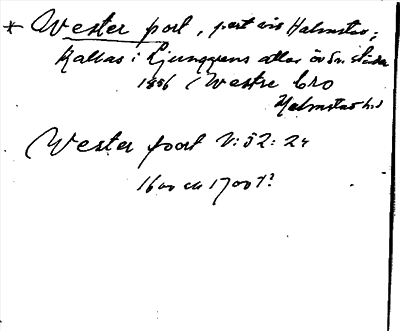 * Wester port, port vid Halmstad;
Kallas i Ljunggrens atlas öv Sv. städer
1856 Westre bro
Halmstad h.d
Wester poort V: 52: 24
1600 ca 1700 t?